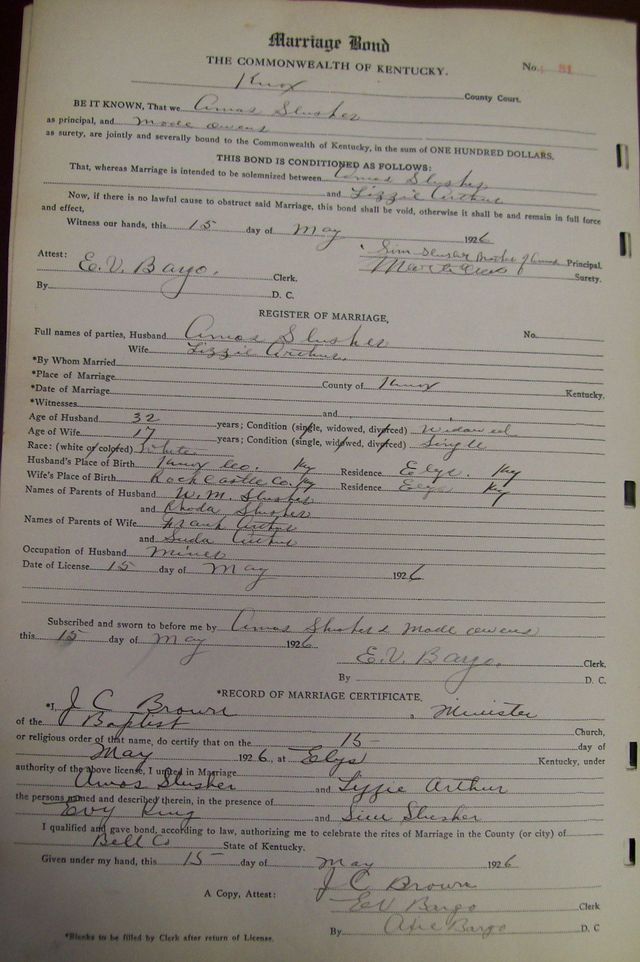 Marriage Bond
THE COMMONWEALTH OF KENTUCKY.
No. 81
Knox County Court.
BE IT KNOWN, That we Amos Slusher
as principal, and Mode Owens
as surety, are jointly and severally bound to the Commonwealth of Kentucky, in the sum of ONE HUNDRED DOLLARS.
THIS BOND IS CONDITIONED AS FOLLOWS:
That, whereas Marriage is intended to be solemnized between Amos Slusher
and Lizzie Arthur
Now, if there is no lawful cause to obstruct said Marriage, this bond shall be void, otherwise it shall be and remain in full force
and effect,
Witness our hands, this 15 day of May 1926
Sim Slusher Brother of Amos Principal.
Attest: E. V. Bargo. Clerk. Surety.
By D. C.
REGISTER OF MARRIAGE,
Full names of parties, Husband Amos Slusher No.
Wife Lizzie Arthur.
*By Whom Married
*Place of Marriage County of Knox Kentucky.
*Date of Marriage
*Witnesses and
Age of Husband 32 years; Condition (single, widowed, divorced) Widowed
Age of Wife 17 years; Condition (single, widowed, divorced) Single
Race: (white or colored) White
Husband's Place of Birth Knox Co. Ky Residence Elys. Ky
Wife's Place of Birth Rockcastle Co. Ky Residence Elys Ky
Names of Parents of Husband W. M. Slusher
and Rhoda Slusher
Names of Parents of Wife Frank Arthur
and Suda Arthur
Occupation of Husband Miner
Date of License 15 day of May 1926
Subscribed and sworn to before me by Amos Slusher & Mode Owens
this 15 day of May 1926
E. V. Bargo. Clerk.
By D. C.
*RECORD OF MARRIAGE CERTIFICATE.
*I, J C Brown, Minister
of the Baptist Church,
or religious order of that name, do certify that on the 15 day of
May 1926, at Elys Kentucky, under
authority of the above license, I united in Marriage
Amos Slusher and Lizzie Arthur
the persons named and described therein, in the presence of
Evy King and Sim Slusher
I qualified and gave bond, according to law, authorizing me to celebrate the rites of Marriage in the County (or city) of
Bell Co State of Kentucky.
Given under my hand, this 15 day of May 1926
J C Brown
A Copy, Attest: E V Bargo Clerk
By Bargo D. C
*Blanks to be filled by Clerk after return of License.